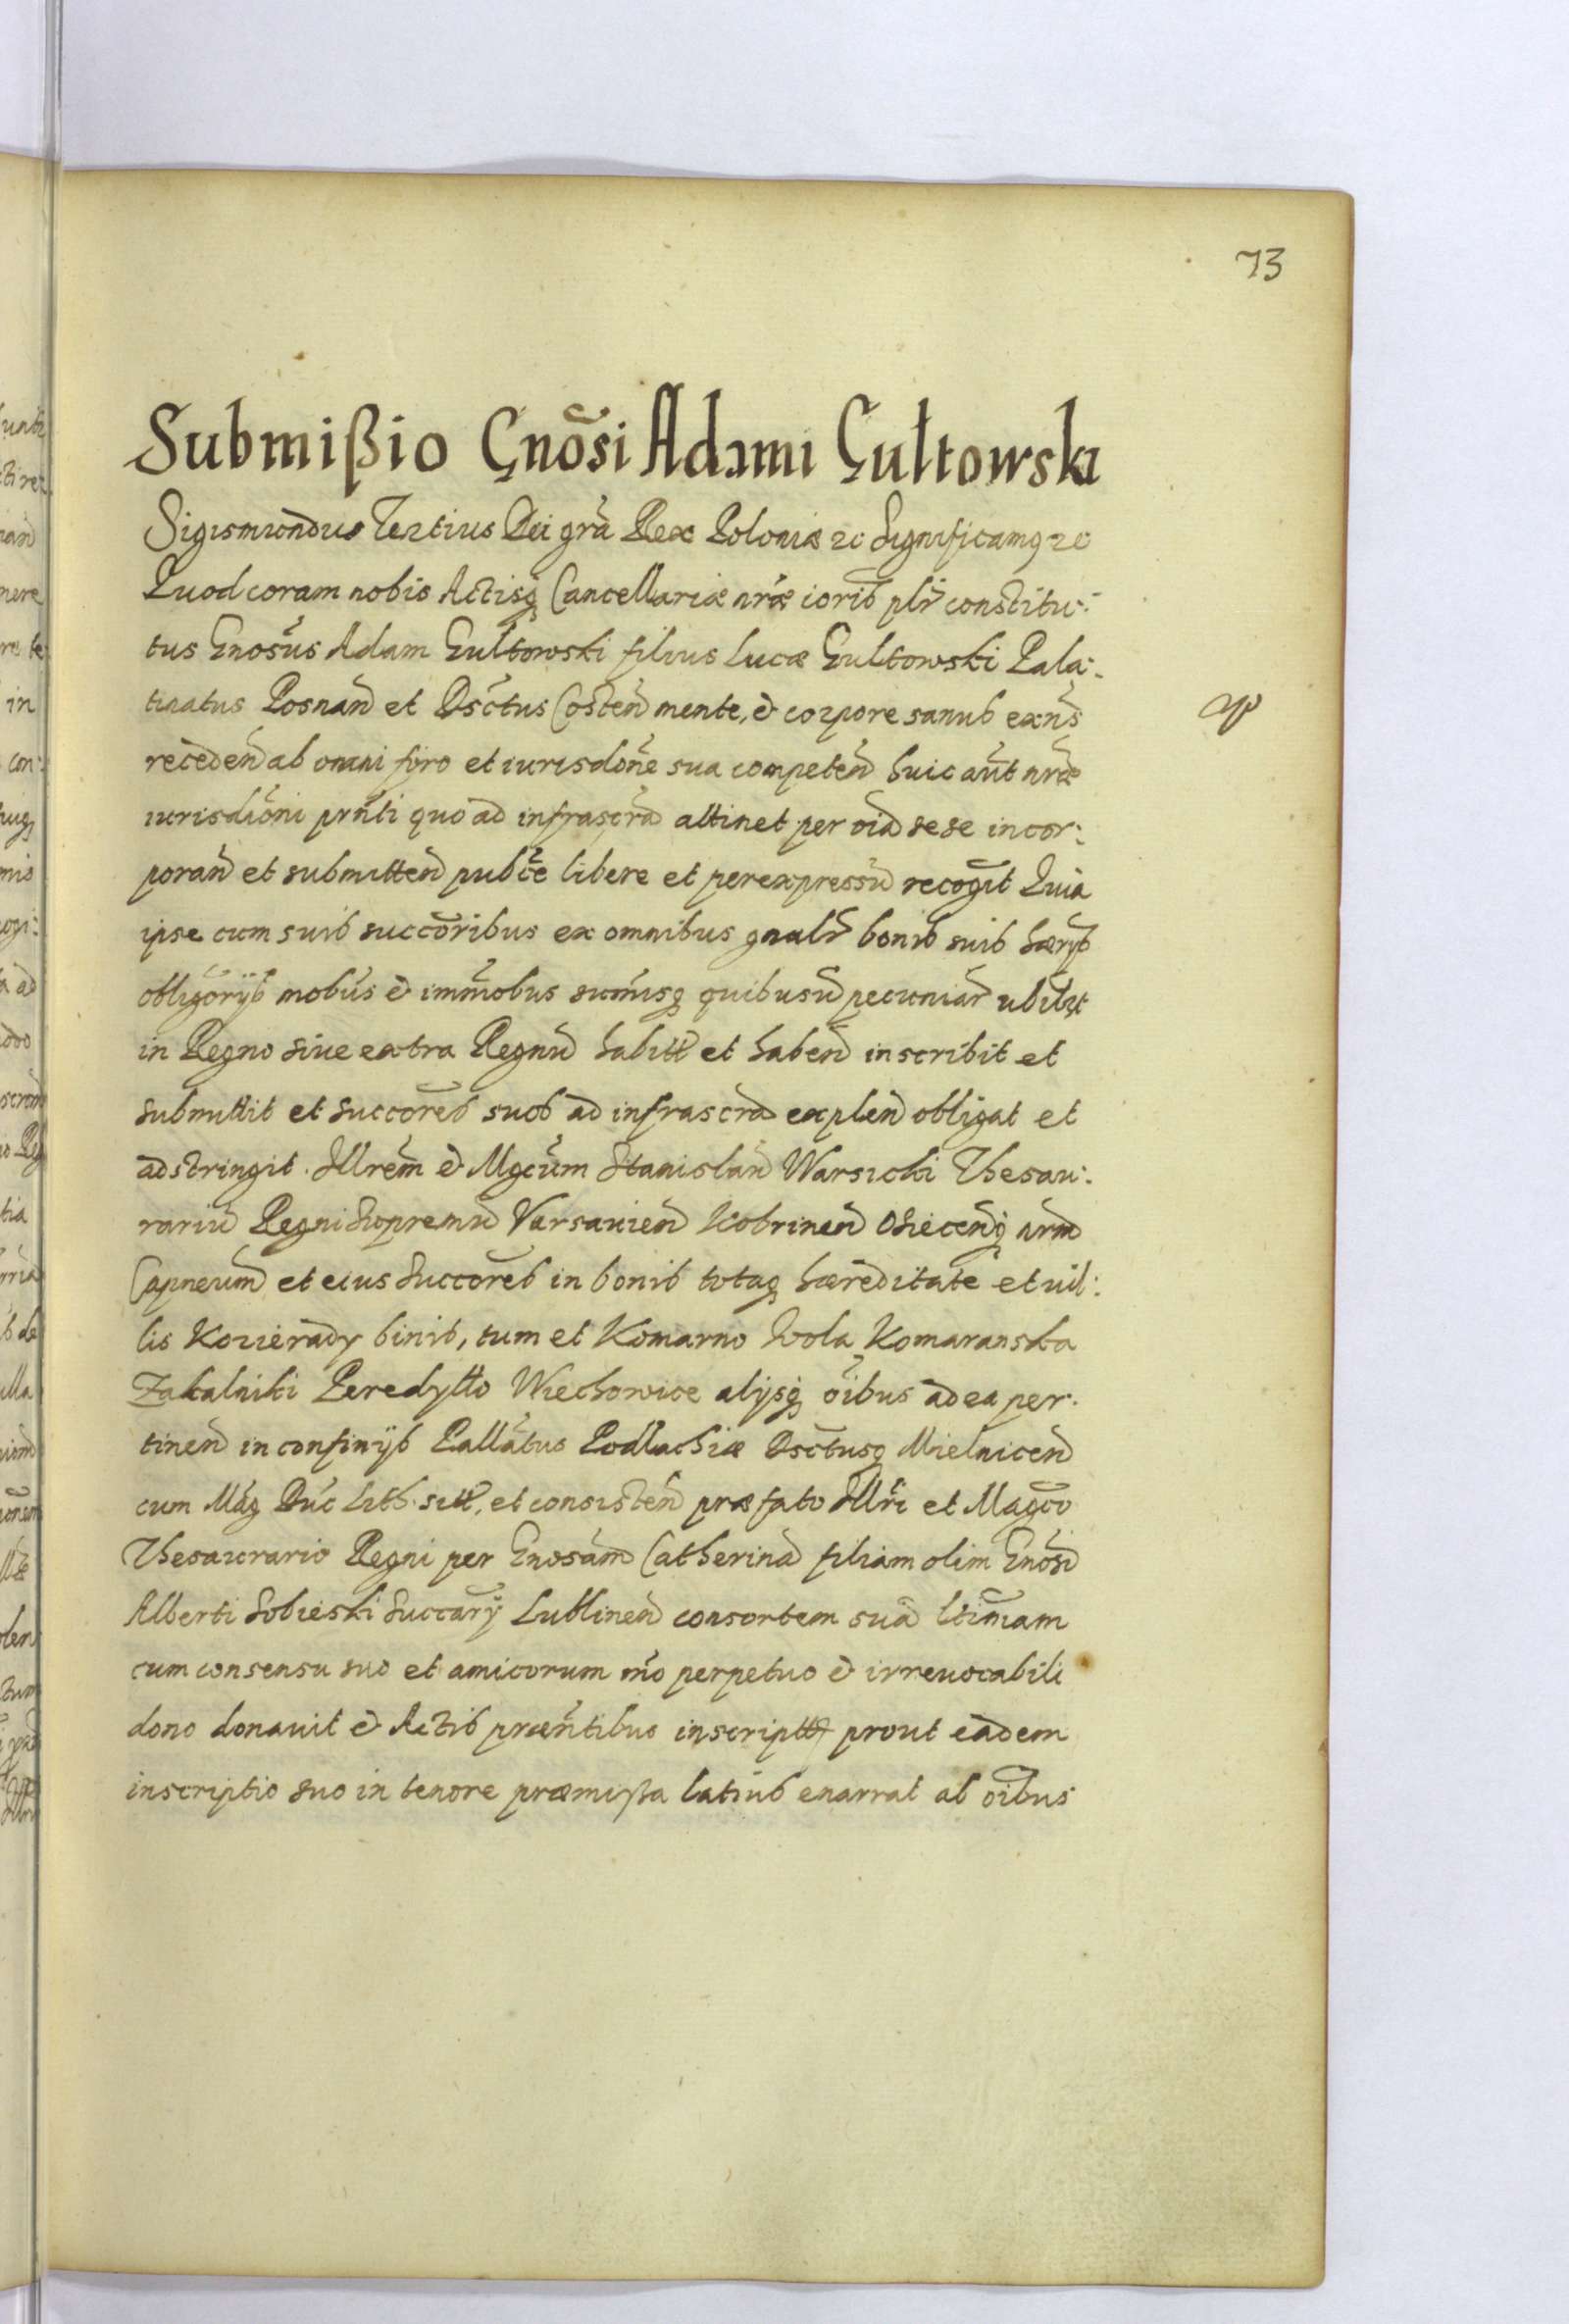 73
Submißio Gnõsi Adami Gułtowski
Sigismundus Tertius Dei grã Rex Poloniæ zc Significamq zc
Quod coram nobis Actisq Cancellariæ nræ iorib plr constitu:
tus Gnosus Adam Gultowski filius Lucæ Gultowski Pala:
tinatus Posnan et Dsctus Costen mente, et corpore sanus exns
receden ab omni foro et iurisdone sua competen huic aut nræ
iurisdioni prnti quo ad infrascra attinet per oia sese incor:
poran et submitten pubce libere et per expressu recogit Quia
ipse cum suis succoribus ex omnibus gnalr bonis suis hærijs
obligorijs mobus et immobus summisq quibusu pecuniar ubilbt
in Regno siue extra Regnu habitt et haben inscribit et
submittit et succores suos ad infrascra explen obligat et
adstringit. Illrem et Mgcum Stanislau Warsicki Thesau:
rariu Regni Supremu Varsauien Kobrinen Osiecenq nrm
Capneum et eius Succores in bonis totaq hæreditate et vil:
lis Kozierady binis, tum et Komarno Wola Komaranska
Zakalniki Peredyłło Wiechowice alijsq oibus ad ea per:
tinen in confinijs Pallatus Podlachiæ Dsctusq Mielnicen
cum Mag Duc Lith. sitt, et consisten præfato Illri et Magco
Thesaurario Regni per Gnosam Catherina filiam olim Gnosi
Alberti Sobieski Succarij Lublinen consortem sua ltimam
cum consensu suo et amicorum mo perpetuo et irreuocabili
dono donauit et Actis præntibus inscriptt prout eadem
inscriptio suo in tenore præmißa latius enarrat ab oibus